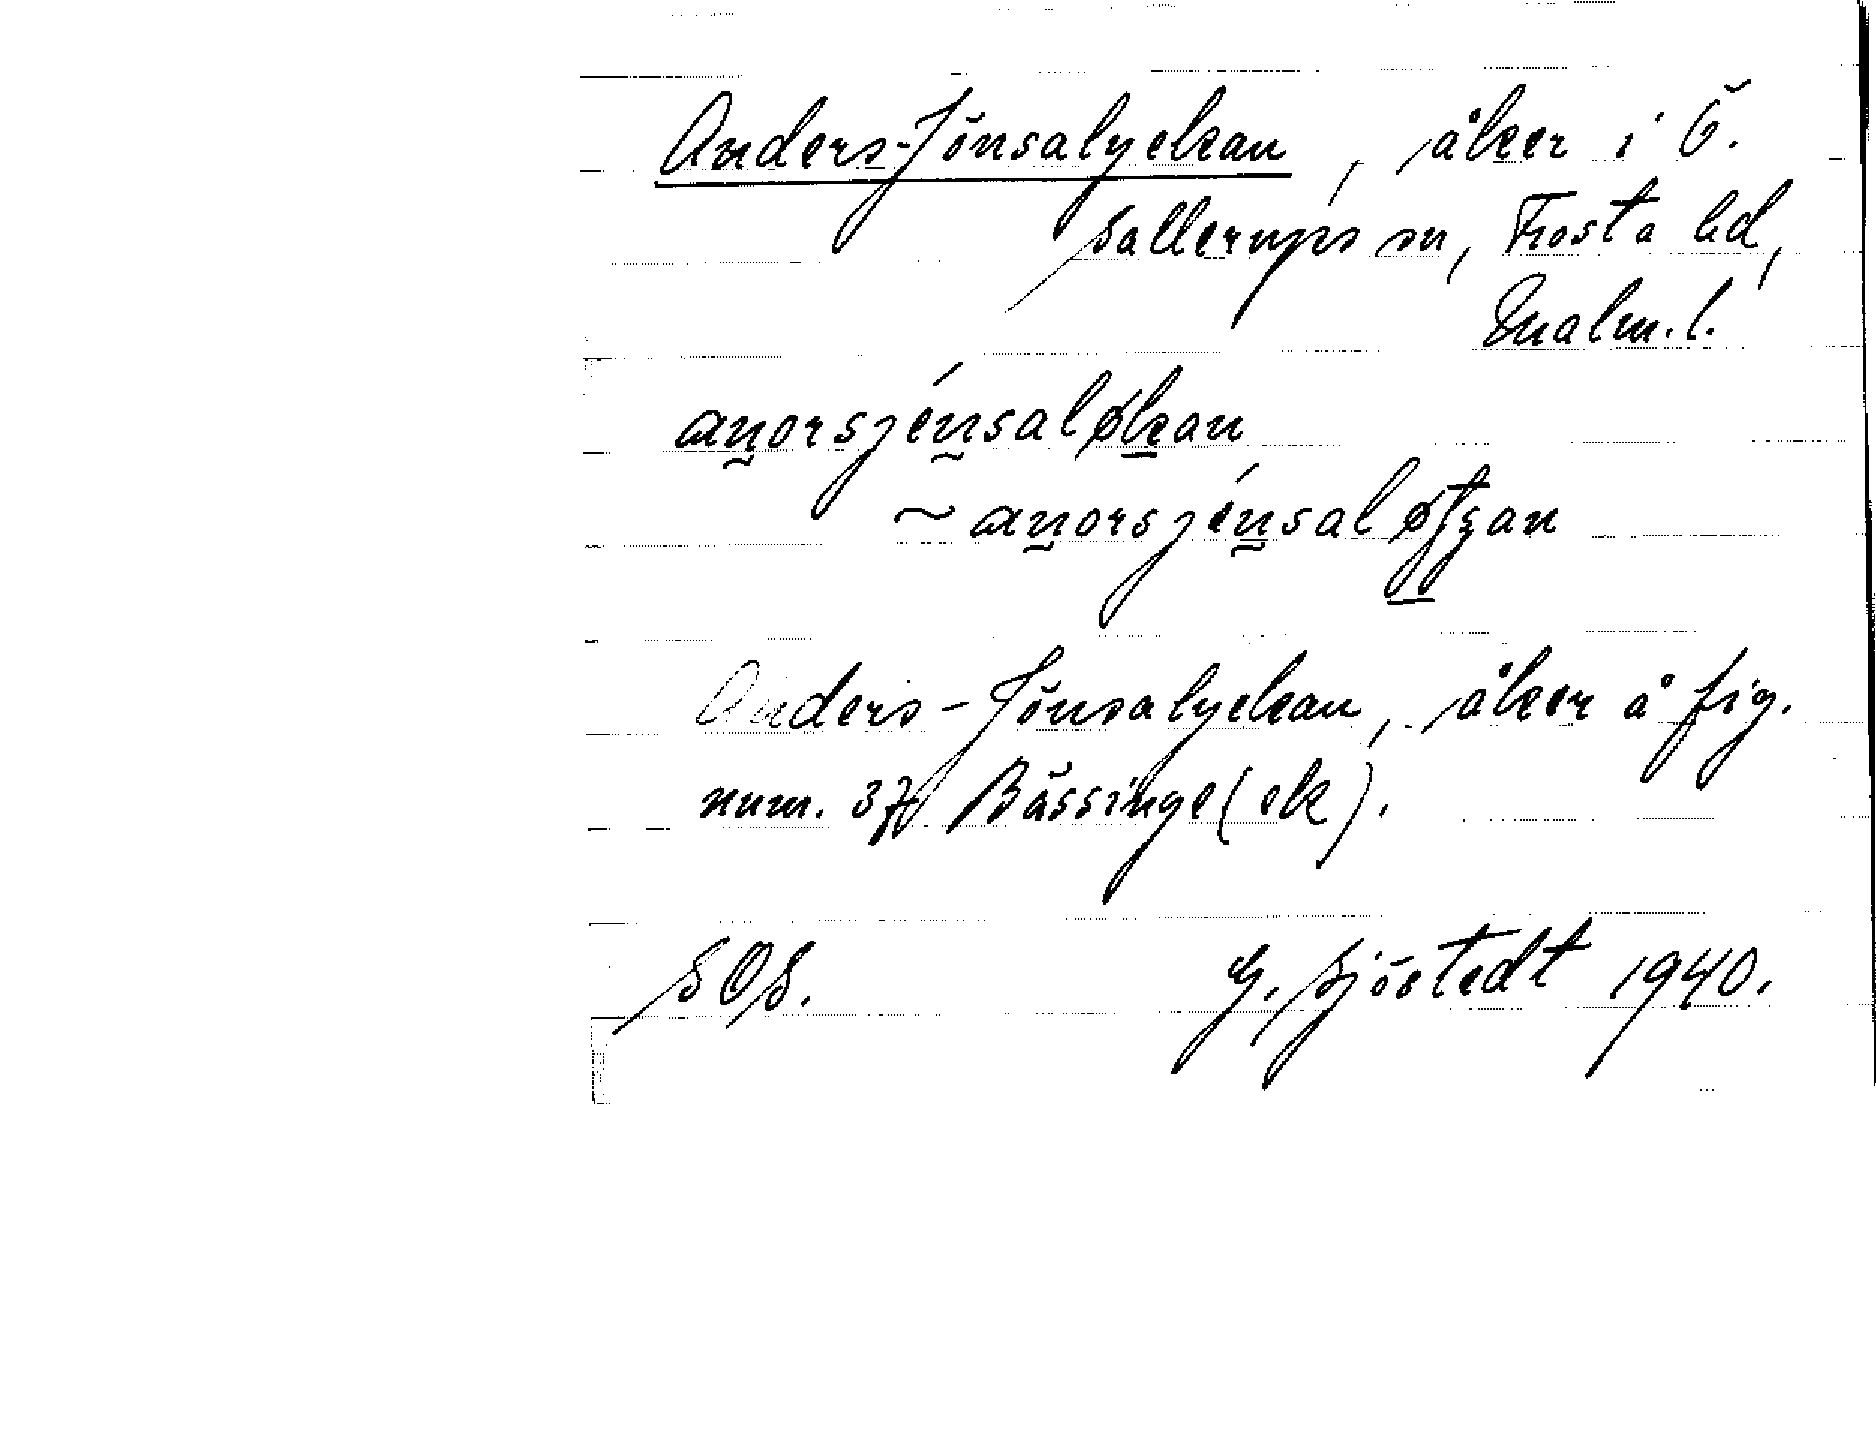 Anders-Jönsalyckan, åker i Ö.
Sallerups sn, Frosta hd,
Malm. l.
anorsjénsaløkan
~ anorsjénsaløtʒan
Anders-Jönsalyckan, åker å fig.
num. 37 Bässinge (ek).
SOS. G. Sjöstedt 1940.